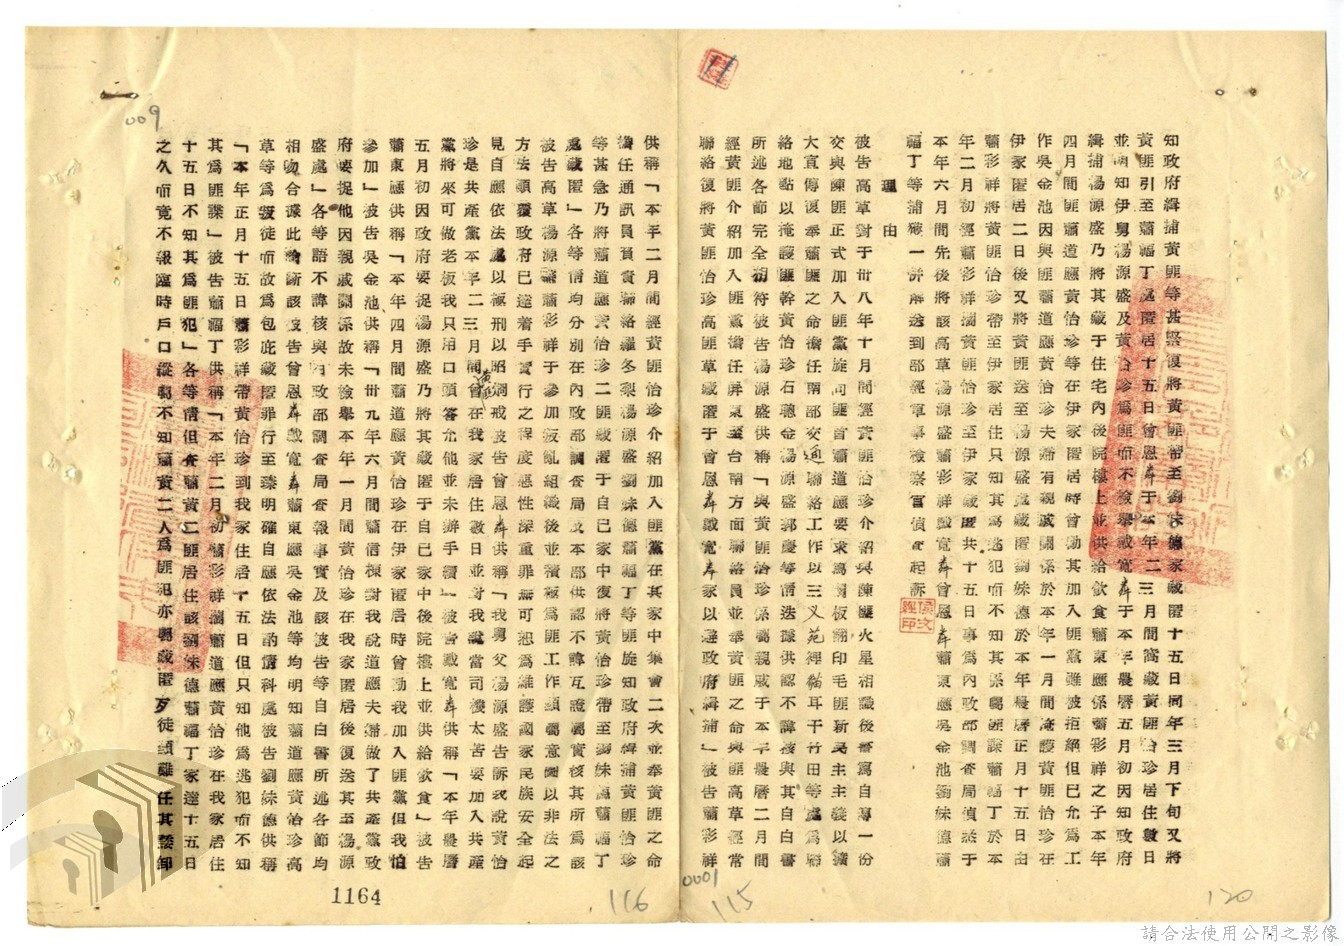 知政府緝捕黃匪等甚緊復將黃匪帶至劉妹德家藏匿十五日同年三月下旬又將
黃匪引至蕭福丁處匿居十五日曾恩奔于本年二三月間窩藏黃匪怡珍居住數日
並明知伊舅楊源盛及黃怡珍為匪而不檢舉戴寬奔于本年農曆五月初因知政府
緝捕楊源盛乃將其藏于住宅內後院樓上並供給飲食蕭東應係蕭彩祥之子本年
四月間匪蕭道應黃怡珍等在伊家匿居時曾勸其加入匪黨雖被拒絕但已允為工
作吳金池因與匪蕭道應黃怡珍夫婦有親戚關係於本年一月間掩護黃匪怡珍在
伊家匿居二日後又將黃匪送至湯源盛處藏匿劉妹德於本年農曆正月十五日由
蕭彩祥將黃匪怡珍帶至伊家居住只知其為逃犯而不知其係屬匪諜蕭福丁於本
年二月初經蕭彩祥濶黃匪怡珍至伊家藏匿共十五日事為內政部調查局偵悉于
本年六月間先後將該高草楊源盛蕭彩祥戴寬奔曾恩奔蕭東應吳金池劉妹德蕭
福丁等浦獲一併解送到部經軍事檢察官偵查起訴
理由
被告高草對于卅八年十月間經黃匪怡珍介紹與陳匪火星相識後書寫自專一份
交與陳匪正式加入匪黨旋向匪首蕭道應要求為闆板翻印毛匪新民主主義以濟
大宣傳復奉蕭匪之命擔任南部交通聯絡工作以三义苑裡黏耳干竹田等處為聯
絡地點以掩護匪幹黃怡珍石聰金湯源盛郭慶等情迭據供認不諱核與其自白書
所述各節完全相符被告楊源盛供稱「與黃匪怡珍係屬親戚于本年農曆二月間
經黃匪介紹加入匪黨擔任屏東至台南方面聯絡員並奉黃匪之命與匪高草經常
聯絡復將黃匪怡珍高匪草藏匿于曾恩奔戴寬奔家以避政府緝捕」被告蕭彩祥
供稱「本年二月間經黃匪怡珍介紹加入匪黨在其家中集會二次並奉黃匪之命
擔任通訊員負責聯絡羅冬梨楊源盛劉妹德蕭福丁等匪旋知政府緝浦黃匪怡珍
等甚急乃將蕭道應黃怡珍二匪藏匿于自己家中復將黃怡珍帶至劉妹德蕭福丁
處藏匿」各等情均分別在內政部調查局及本部供認不諱互證屬實核其所為該
被告高草楊源盛蕭彩祥于參加叛亂組織後並積極為匪工作顯屬意圖以非法之
方法顛覆政府已達着手實行之程度惡性深重罪無可恕為維護國家民族安全起
見自應依法處以極刑以昭烱戒被告曾恩奔供稱「我舅父湯源盛告訴我說黃怡
珍是共產黨本年二三月間黃匪曾在我家居住數日並對我說當司機太苦要加入共產
黨將來可做老板我只用口頭答允他並未辦手續」被告戴寬奔供稱「本年農曆
五月初因政府要捉湯源盛乃將其藏匿于自己家中後院樓上並供給飲食」被告
蕭東應供稱「本年四月間蕭道應黃怡珍在伊家匿居時曾勸我加入匪黨但我怕
參加」被告吳金池供稱「卅九年六月間蕭信棟對我說道應夫婦做了共產黨政
府要捉他因親戚關係故未檢舉本年一月間黃怡珍在我家匿居後復送其至湯源
盛處」各等語不諱核與內政部調查局查報事實及該被告等自白書所述各節均
相吻合據此論斷該被告曾恩奔戴寬奔蕭東應吳金池等均明知蕭道應黃怡珍高
草等為叛徒而故為包庇藏匿罪行至臻明確自應依法酌情科處被告劉妹德供稱
「本年正月十五日蕭彩祥帶黃怡珍到我家住居了五日但只知他為逃犯而不知
其為匪諜」被告蕭福丁供稱「本年二月初蕭彩祥濶蕭道應黃怡珍在我家居住
十五日不知其為匪犯」各等情但查蕭黃二匪居住該劉妹德蕭福丁家達十五日
之久而竟不報臨時戶口縱屬不知蕭黃二人為匪犯亦屬藏匿歹徒顯難任其諉卸
009
1164
116
0001
115
120
請合法使用公開之影像